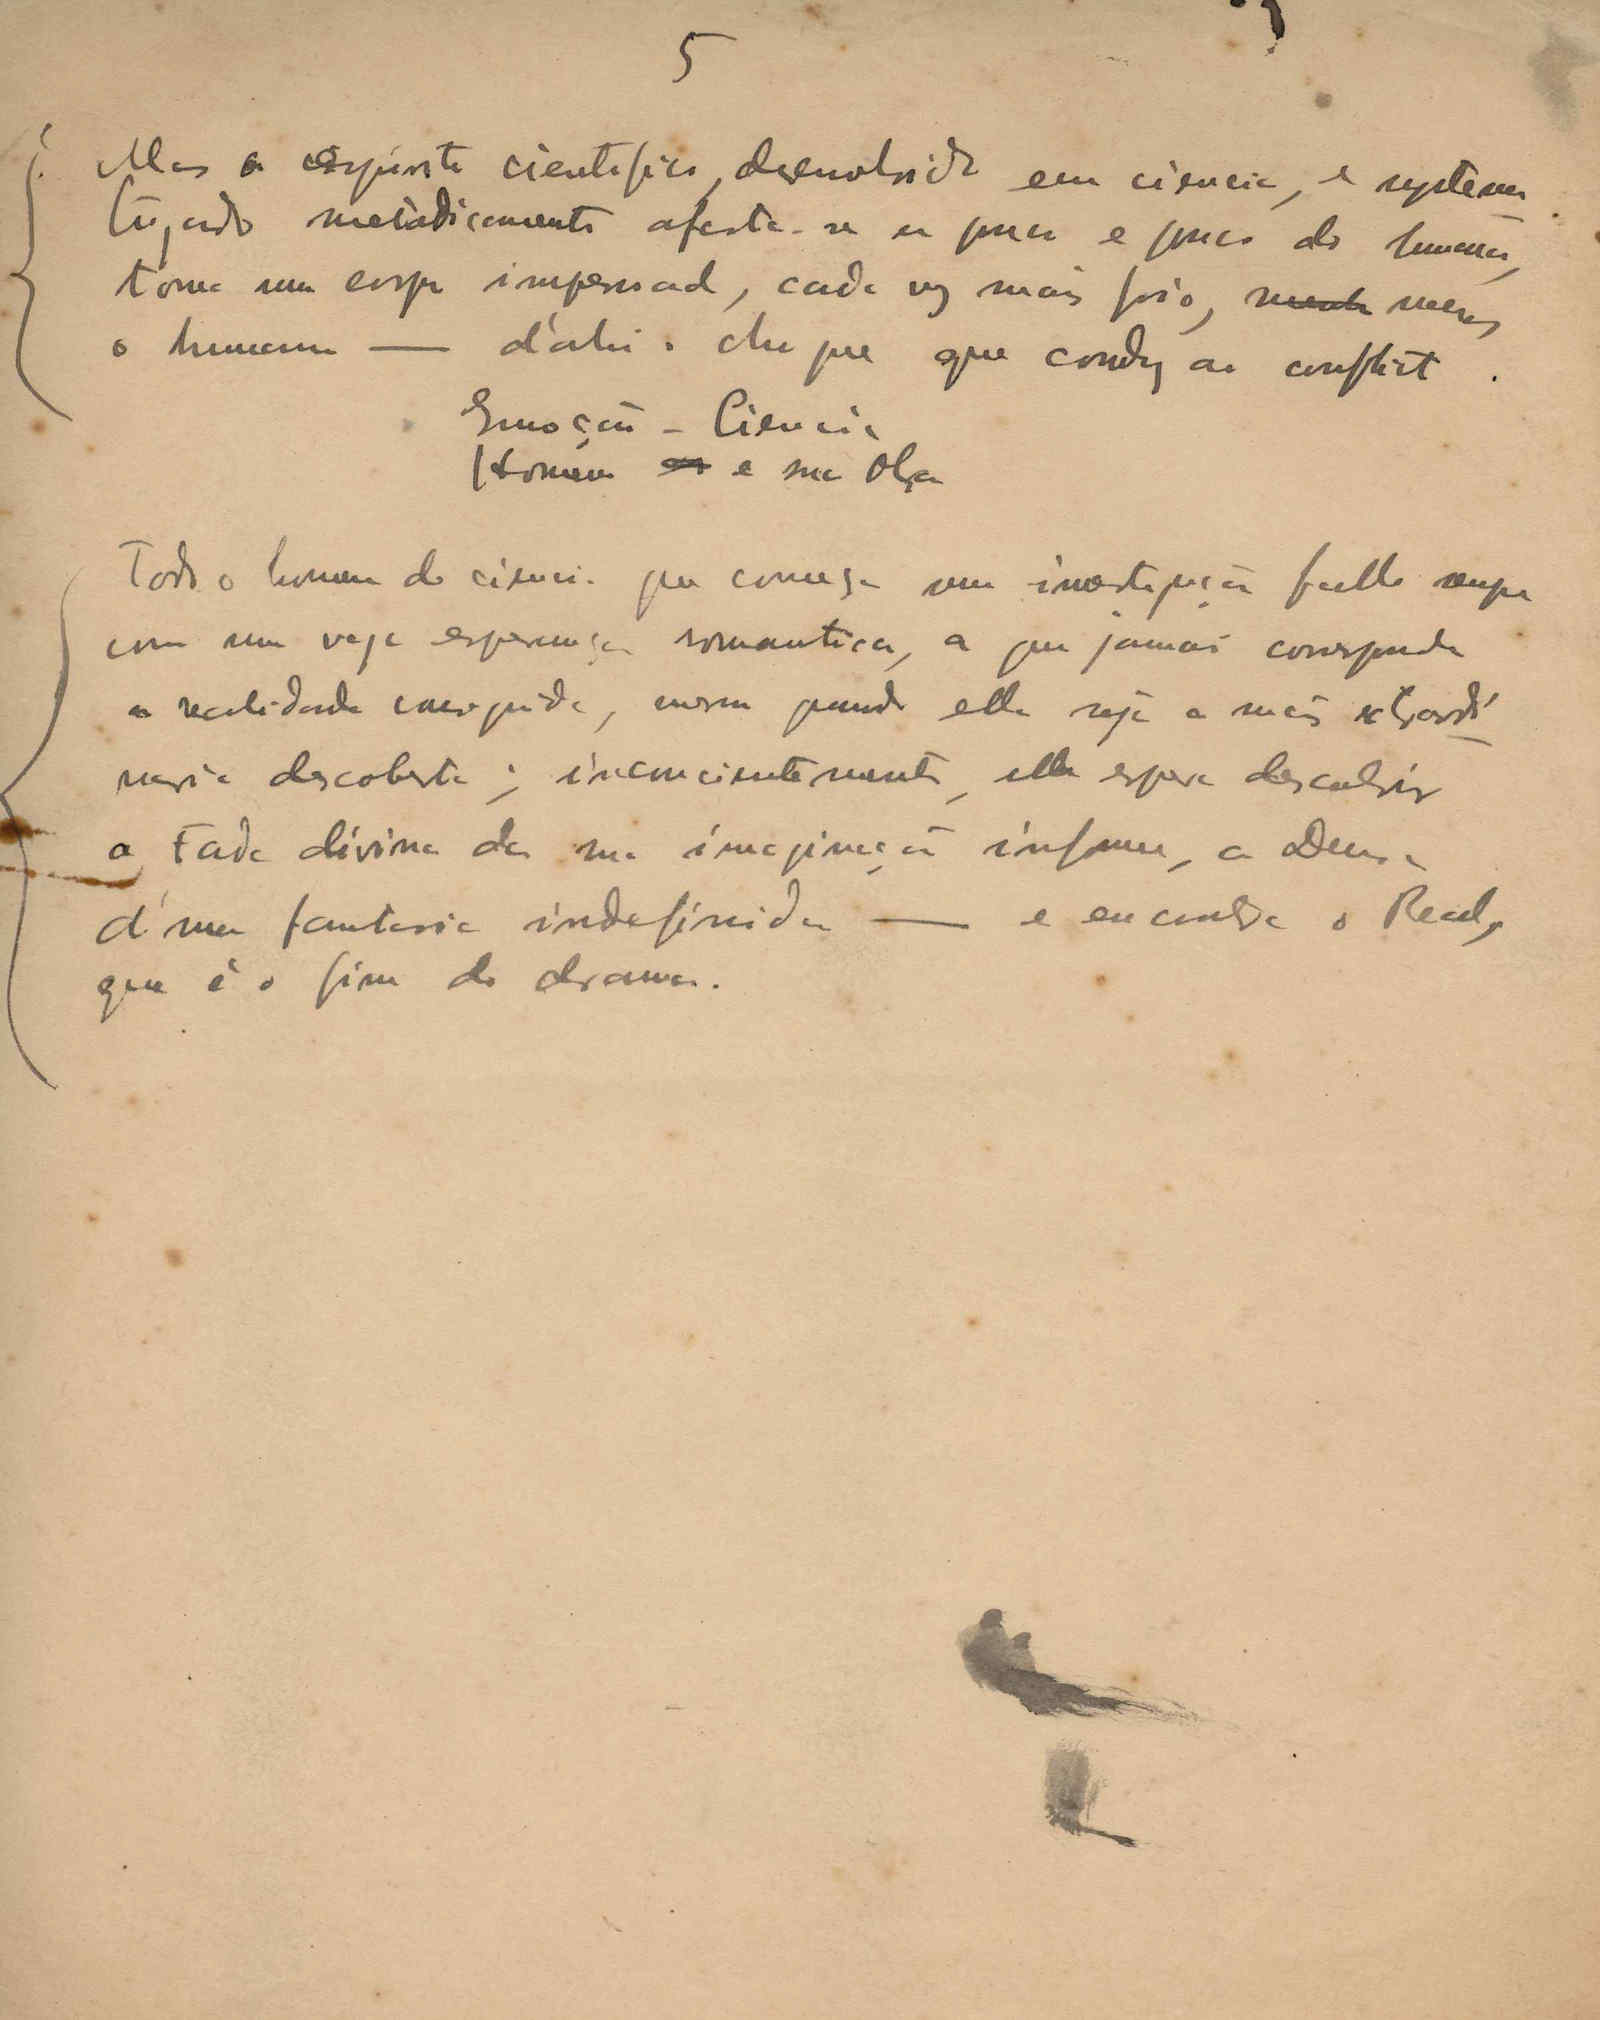 5
Mas o espirito cientifico, desenvolvido em ciencia, e systema
tizado metodicamente afasta-se a pouco e pouco do humano,
toma um corpo impessoal, cada vez mais frio, menos
o humano — d'ahi o choque que conduz ao conflicto.
Emoção - Ciencia
Homem e sua Obra
Todo o homem de ciencia que começa uma investigação falla sempre
com uma vaga esperança romantica, a que jamais corresponde
a realidade conseguida, mesmo quando ella seja a mais extraordi
naria descoberta; inconcientemente, elle espera descobrir
a Fada divina da sua imaginação informe, a Deusa
d'uma fantasia indefinida — e encontra o Real,
que é o fim do drama.